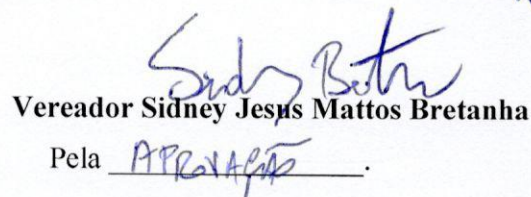 Sidney Bretanha
Vereador Sidney Jesus Mattos Bretanha
Pela APROVAÇÃO.